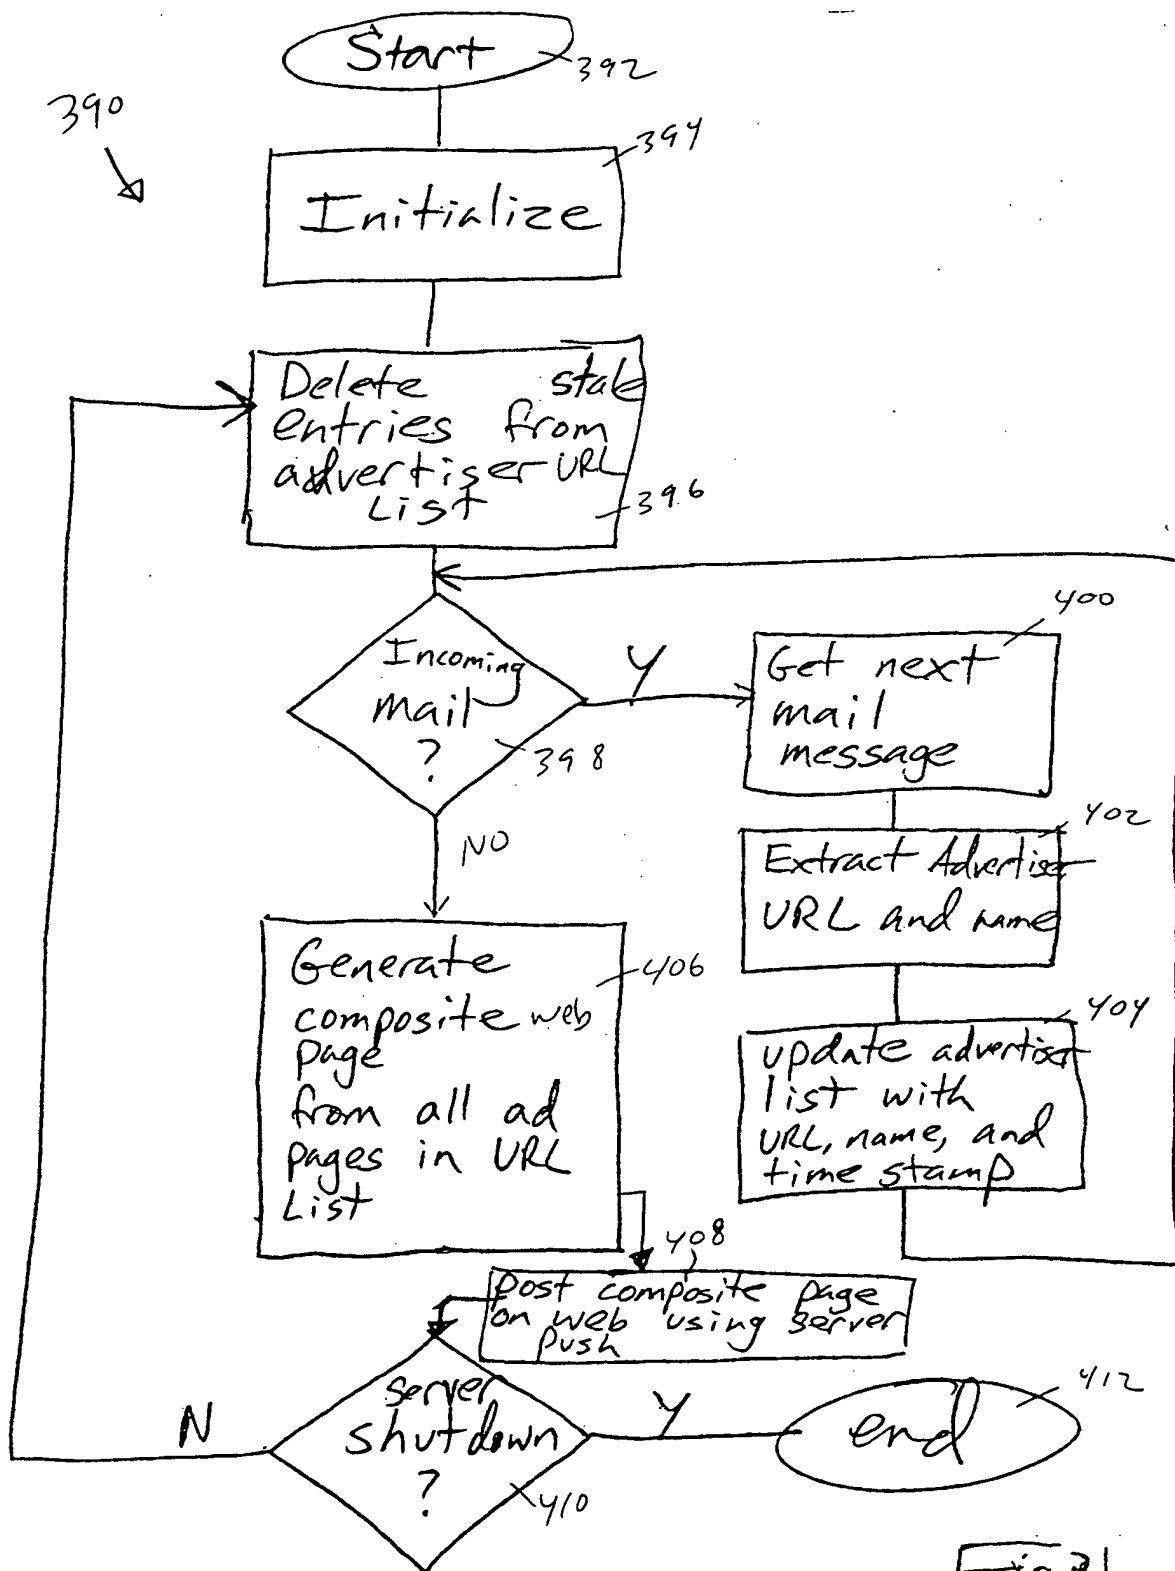 Start
392
390
394
Initialize
Delete stale
entries from
advertiser URL
List
396
Incoming
mail
?
398
Y
400
Get next
mail
message
402
Extract Advertiser
URL and name
404
update advertiser
list with
URL, name, and
time stamp
NO
Generate
composite web
page
from all ad
pages in URL
List
406
408
post composite page
on web using server
push
server
shutdown
?
410
N
Y
end
412